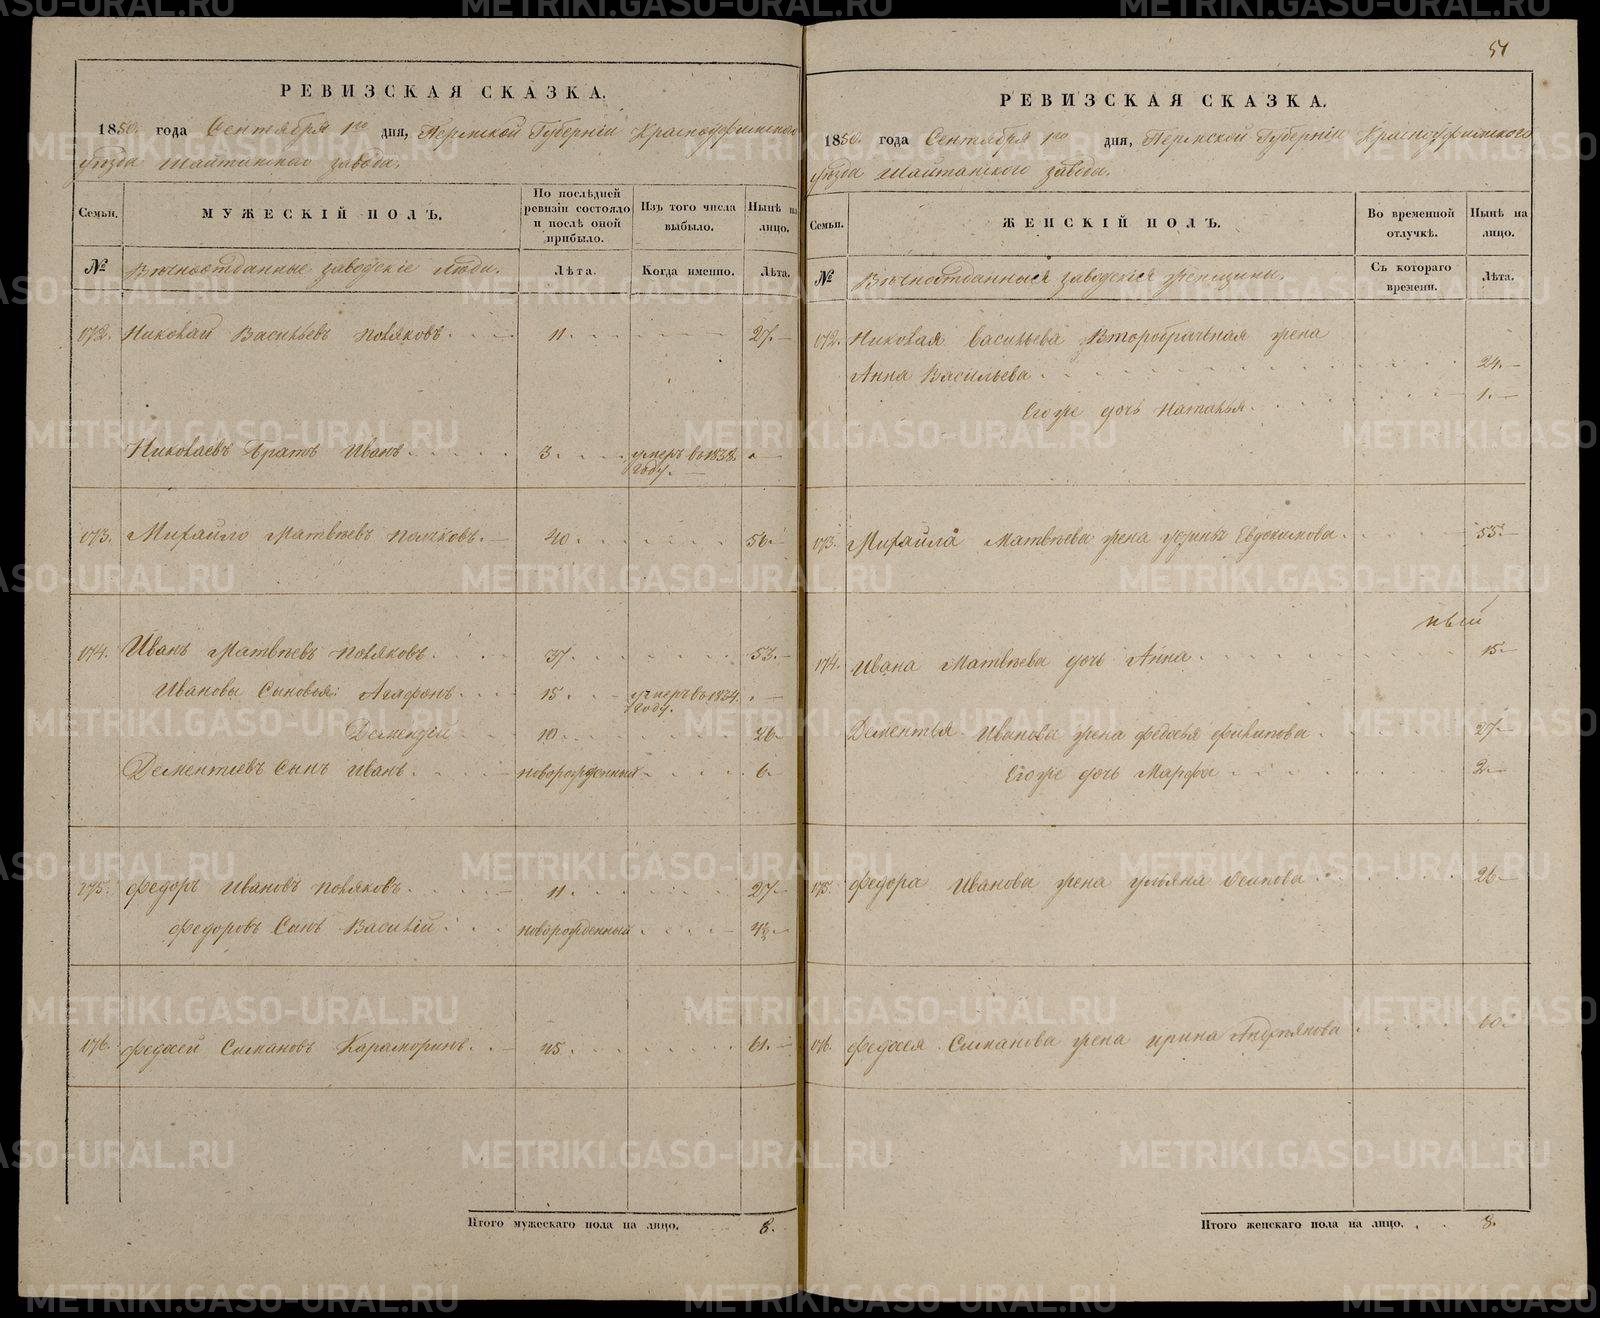 51
РЕВИЗСКАЯ СКАЗКА.
1850. года Сентября 1го дня, Пермской Губерніи Красноуфимскаго
уѣзда Шайтанскаго завода.
Семьи.
МУЖЕСКІЙ ПОЛЪ.
По послѣдней ревизіи состояло и послѣ оной прибыло.
Изъ того числа выбыло.
Нынѣ на лицо.
№
Вѣчноотданные заводскіе люди.
Лѣта.
Когда именно.
Лѣта.
172. Николай Васильевъ Поляковъ. 11. 27.
Николаевъ братъ Иванъ. 3. умеръ въ 1838.
году.
173. Михайло Матвѣевъ Поляковъ. 40. 56.
174. Иванъ Матвѣевъ Поляковъ. 37. 53.
Ивановы сыновья: Агафонъ. 15. умеръ въ 1834.
году.
Дементей 10. 26.
Дементіевъ сынъ Иванъ. новорожденный 6.
175. Федоръ Ивановъ Поляковъ. 11. 27.
Федоровъ сынъ Василій. новорожденный
176. Федосей Симановъ Караморинъ. 45. 61.
Итого мужескаго пола на лицо. 8.
РЕВИЗСКАЯ СКАЗКА.
1850. года Сентября 1го дня, Пермской Губерніи Красноуфимскаго
уѣзда Шайтанскаго завода.
Семьи.
ЖЕНСКІЙ ПОЛЪ.
Во временной отлучкѣ.
Нынѣ на лицо.
№
Вѣчноотданныя заводскія женщины.
Съ котораго времени.
Лѣта.
172. Николая Васильева второбрачная жена
Анна Васильева. 24.
Его же дочь Наталья. 1.
173. Михайла Матвѣева жена Устинья Евдокимова. 55.
174. Ивана Матвѣева дочь Анна 15.
Дементья Иванова жена Федосья Филипова. 27.
Его же дочь Марфа 2.
175. Федора Иванова жена Ульяна Осипова 26.
176. Федосея Симанова жена Ирина Андреянова 60.
Итого женскаго пола на лицо. 8.
METRIKI.GASO-URAL.RU